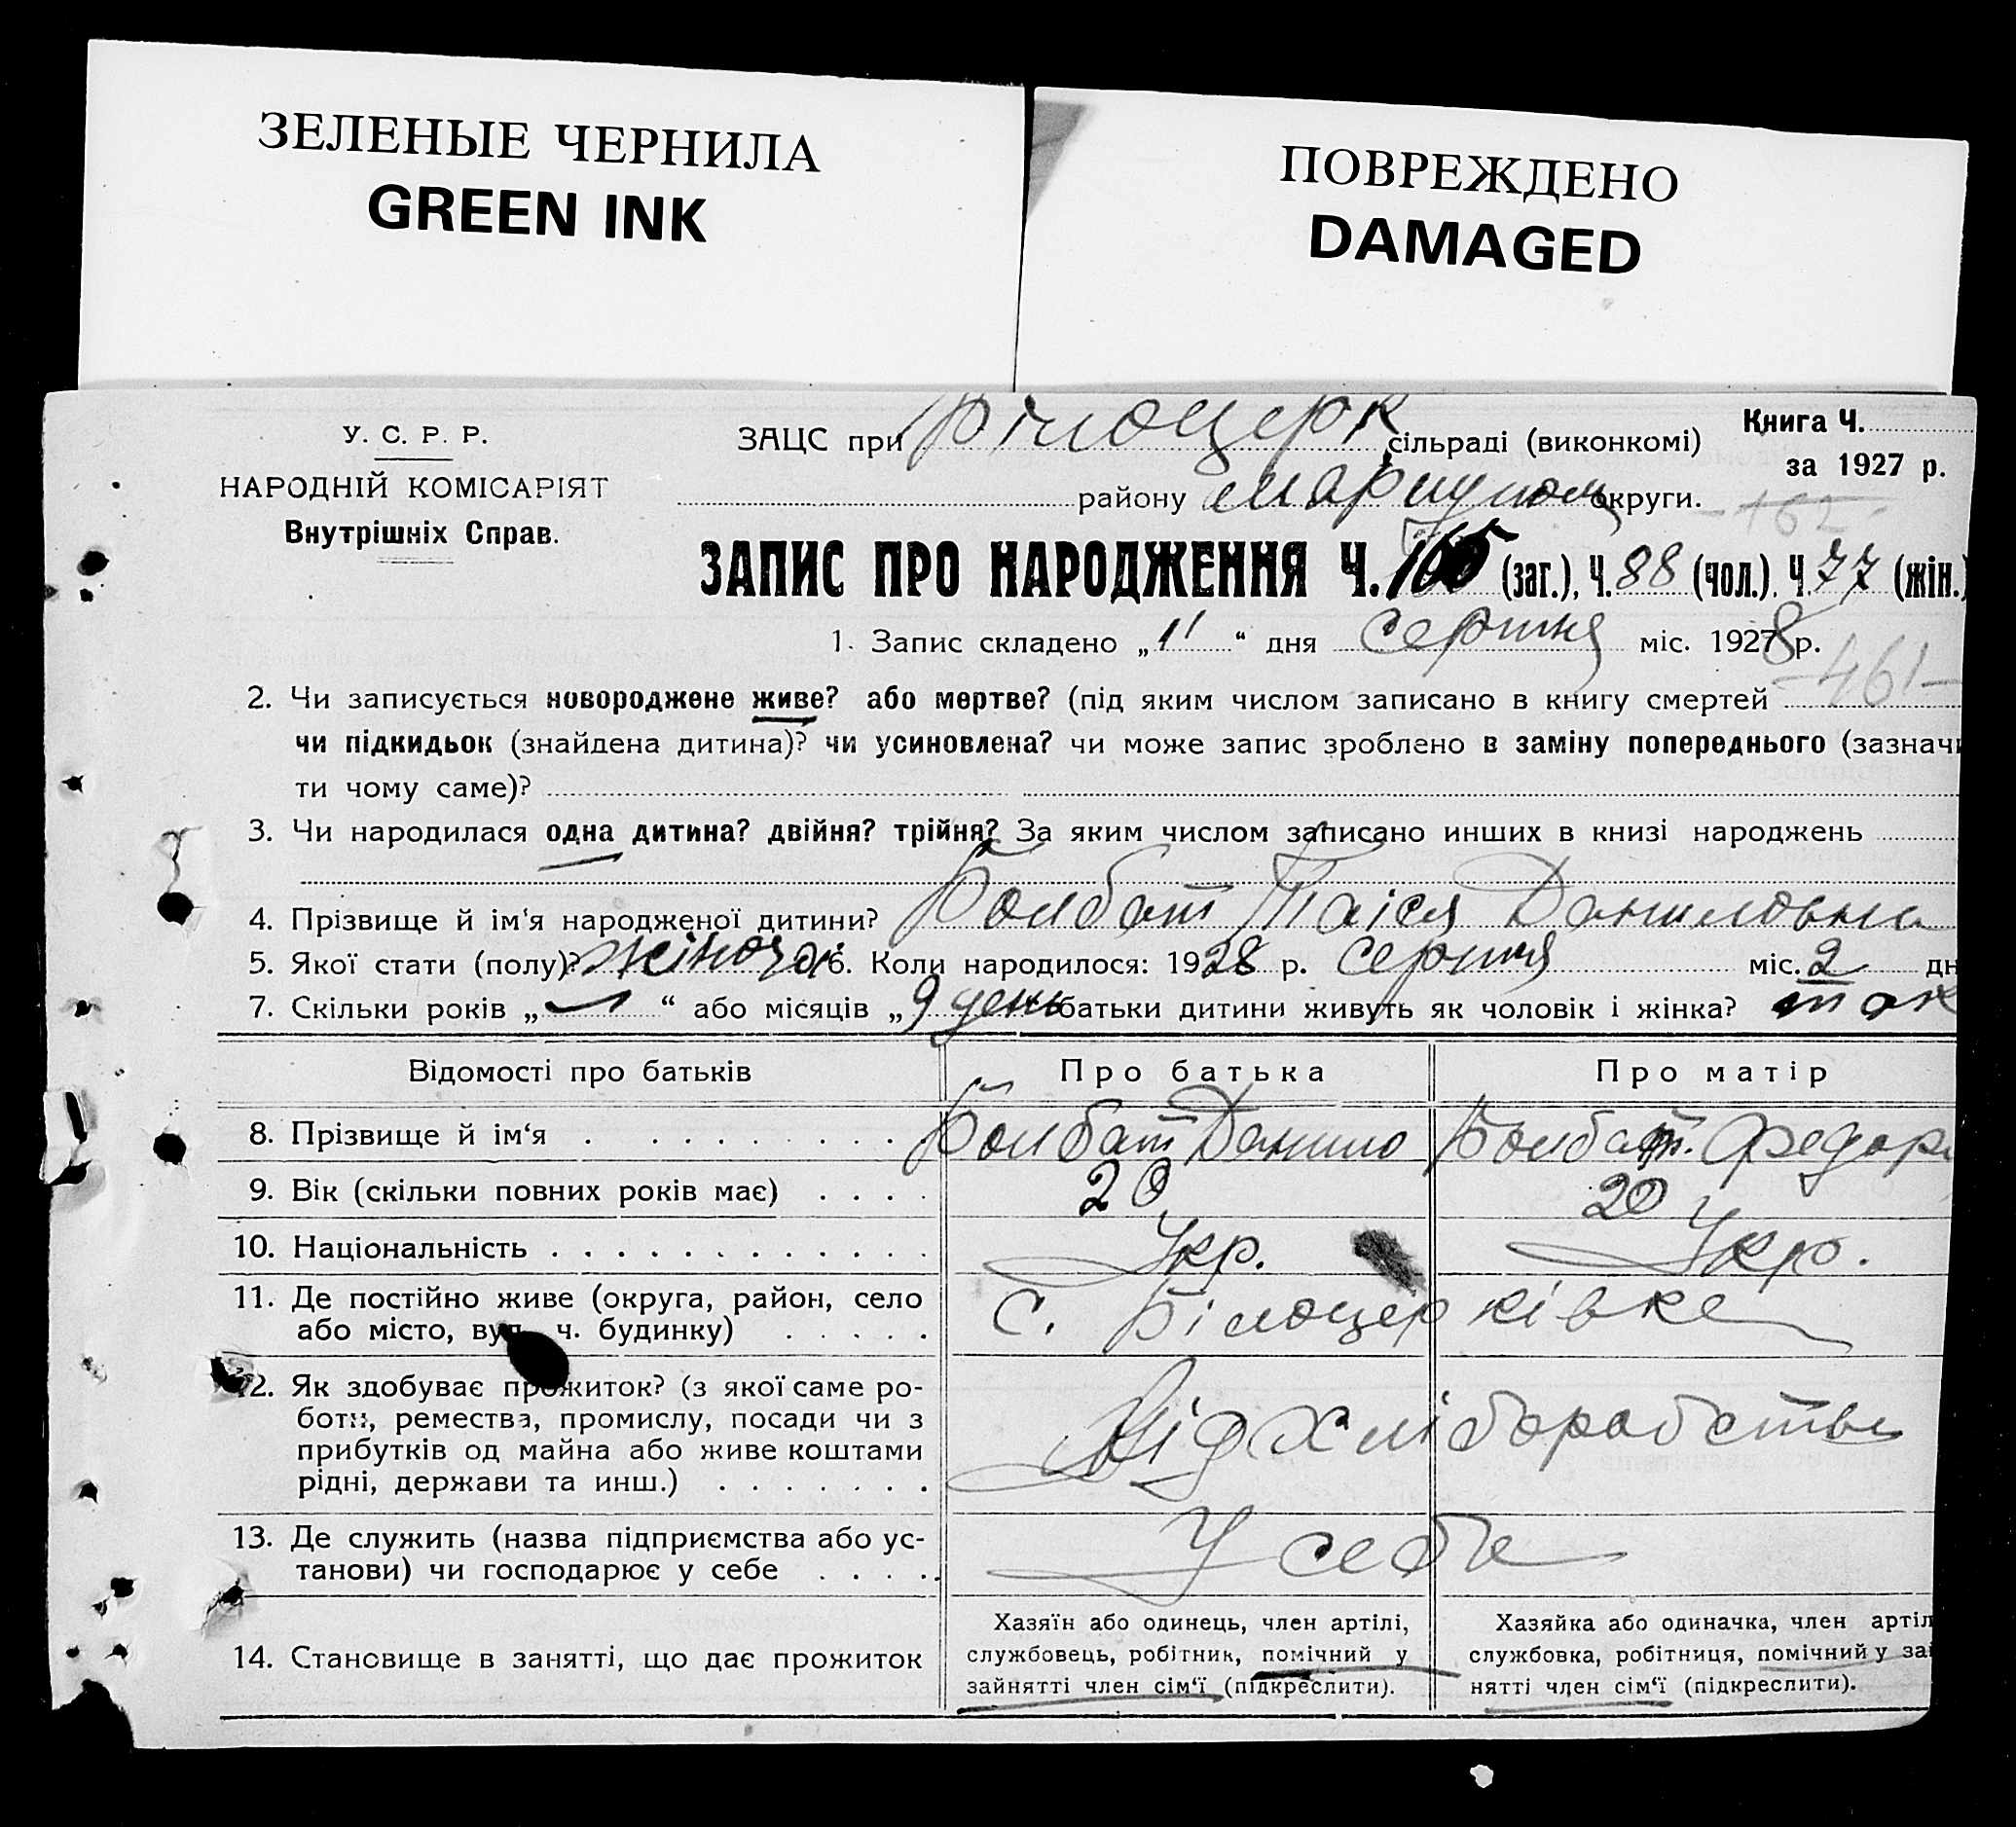 ЗЕЛЕНЫЕ ЧЕРНИЛА
GREEN INK
ПОВРЕЖДЕНО
DAMAGED
У. С. Р. Р.
НАРОДНІЙ КОМІСАРІЯТ
Внутрішніх Справ.
Книга Ч.
за 1927 р.
ЗАЦС при Білоцерк сільраді (виконкомі)
району Маріупол округи.
162
ЗАПИС ПРО НАРОДЖЕННЯ Ч. 165 (заг.), Ч. 88 (чол.). Ч. 77 (жін.)
1. Запис складено „11“ дня серпня міс. 1928 р.
-461-
2. Чи записується новороджене живе? або мертве? (під яким числом записано в книгу смертей
чи підкидьок (знайдена дитина)? чи усиновлена? чи може запис зроблено в заміну попереднього (зазначи
ти чому саме)?
3. Чи народилася одна дитина? двійня? трійня? За яким числом записано инших в книзі народжень
4. Прізвище й ім'я народженої дитини? Болбат Таіся Даниловна
5. Якої стати (полу)? жіночої 6. Коли народилося: 1928 р. серпня міс. 2 дн
7. Скільки років „—“ або місяців „9 день батьки дитини живуть як чоловік і жінка? так
Відомості про батьків Про батька Про матір
8. Прізвище й ім'я Болбат Данило Болбат Федор
9. Вік (скільки повних років має) 20 20
10. Національність Укр. Укр.
11. Де постійно живе (округа, район, село
або місто, вул. ч. будинку) с. Білоцерківке
12. Як здобуває прожиток? (з якої саме ро-
боти, ремества, промислу, посади чи з
прибутків од майна або живе коштами
рідні, держави та инш.) Від хліборобства
13. Де служить (назва підприємства або ус-
танови) чи господарює у себе У себе
14. Становище в занятті, що дає прожиток
Хазяїн або одинець, член артілі,
службовець, робітник, помічний у
зайнятті член сім'ї (підкреслити).
Хазяйка або одиначка, член артіл
службовка, робітниця, помічний у зай
нятті член сім'ї (підкреслити).